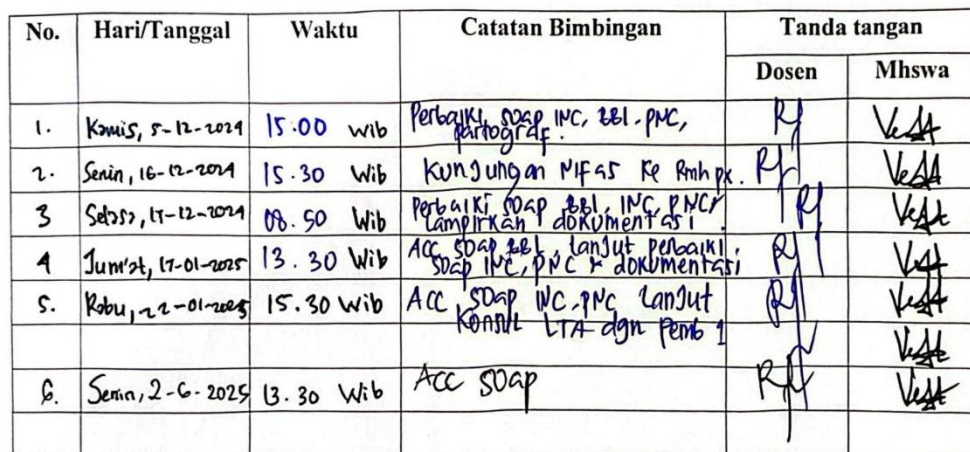 No. Hari/Tanggal Waktu Catatan Bimbingan Tanda tangan
Dosen Mhswa
1. Kamis, 5-12-2024 15.00 Wib Perbaiki SOAP INC, BBL, PNC,
partograf.
2. Senin, 16-12-2024 15.30 Wib Kunjungan Nifas Ke Rmh px.
3 Selasa, 17-12-2024 08.50 Wib Perbaiki SOAP BBL, INC, PNC,
Lampirkan dokumentasi.
4 Jum'at, 17-01-2025 13.30 Wib Acc SOAP BBL, Lanjut perbaiki
SOAP INC, PNC & dokumentasi
5. Rabu, 22-01-2025 15.30 Wib Acc SOAP INC, PNC Lanjut
Konsul LTA dgn Pemb 1
6. Senin, 2-6-2025 13.30 Wib Acc SOAP